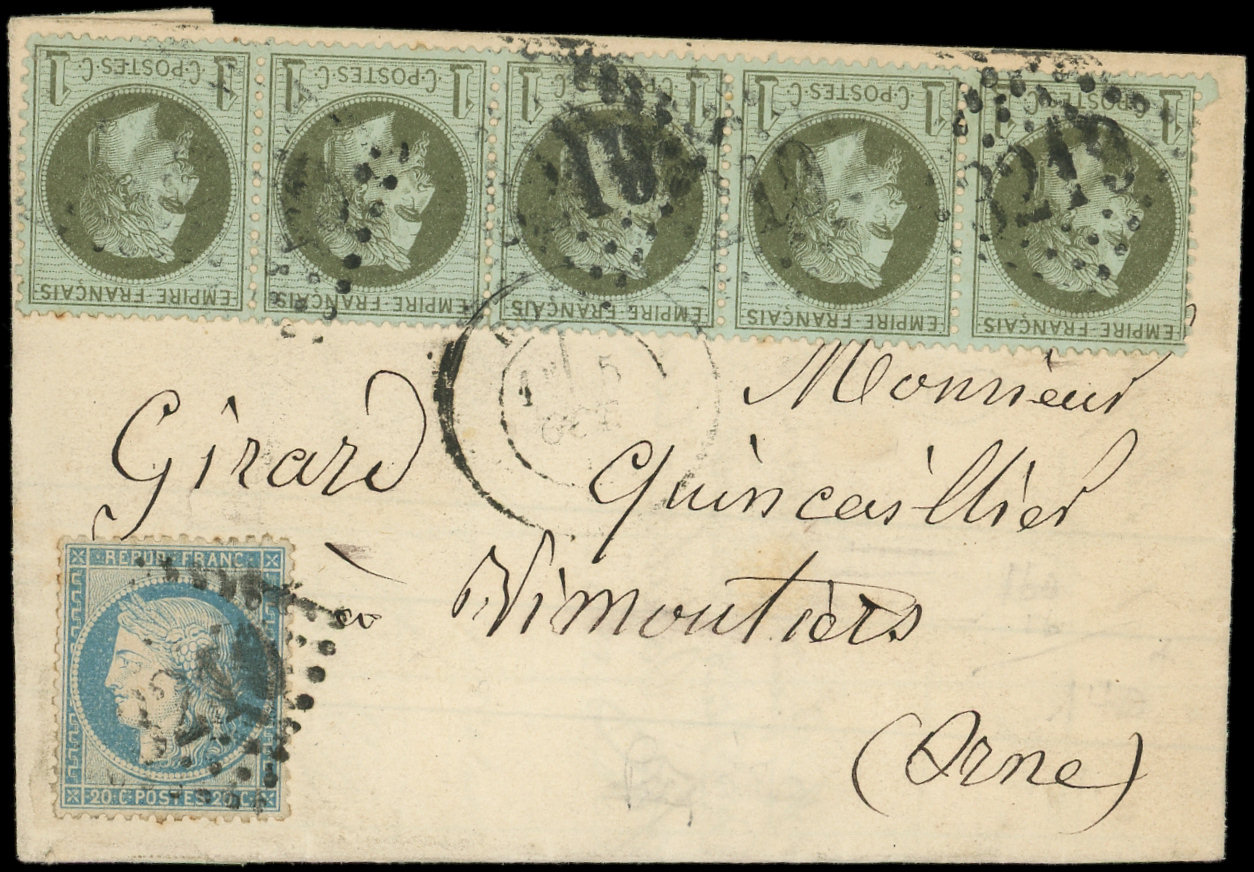 1 C·POSTES·C· 1
1 C·POSTES·C· 1
1 1
1 C·POSTES·C· 1
1 1
EMPIRE FRANÇAIS
EMPIRE FRANÇAIS
EMPIRE FRANÇAIS
EMPIRE FRANÇAIS
EMPIRE FRANÇAIS
2219
5
OCT
Monsieur
Girard Quincaillier
à Vimoutiers
(Orne)
REPUB. FRANC.
20·C·POSTES·20·C·